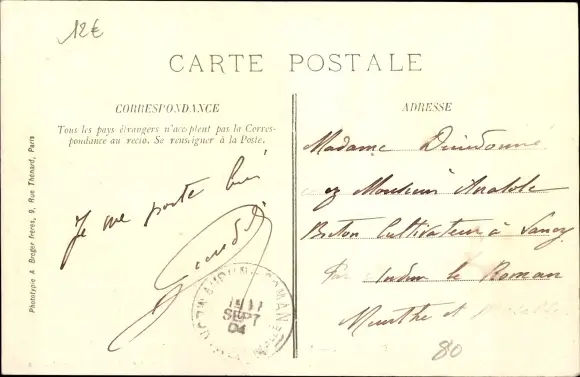 12€
CARTE POSTALE
CORRESPONDANCE
Tous les pays étrangers n'acceptent pas la Corres-
pondance au recto. Se renseigner à la Poste.
Je me porte bien
ADRESSE
Madame
Monsieur Anatole
Breton Cultivateur à Sancy
par Audun le Roman
Meurthe et Moselle
80
SEPT
04
Phototypie A Breger frères, 9, Rue Thénard, Paris